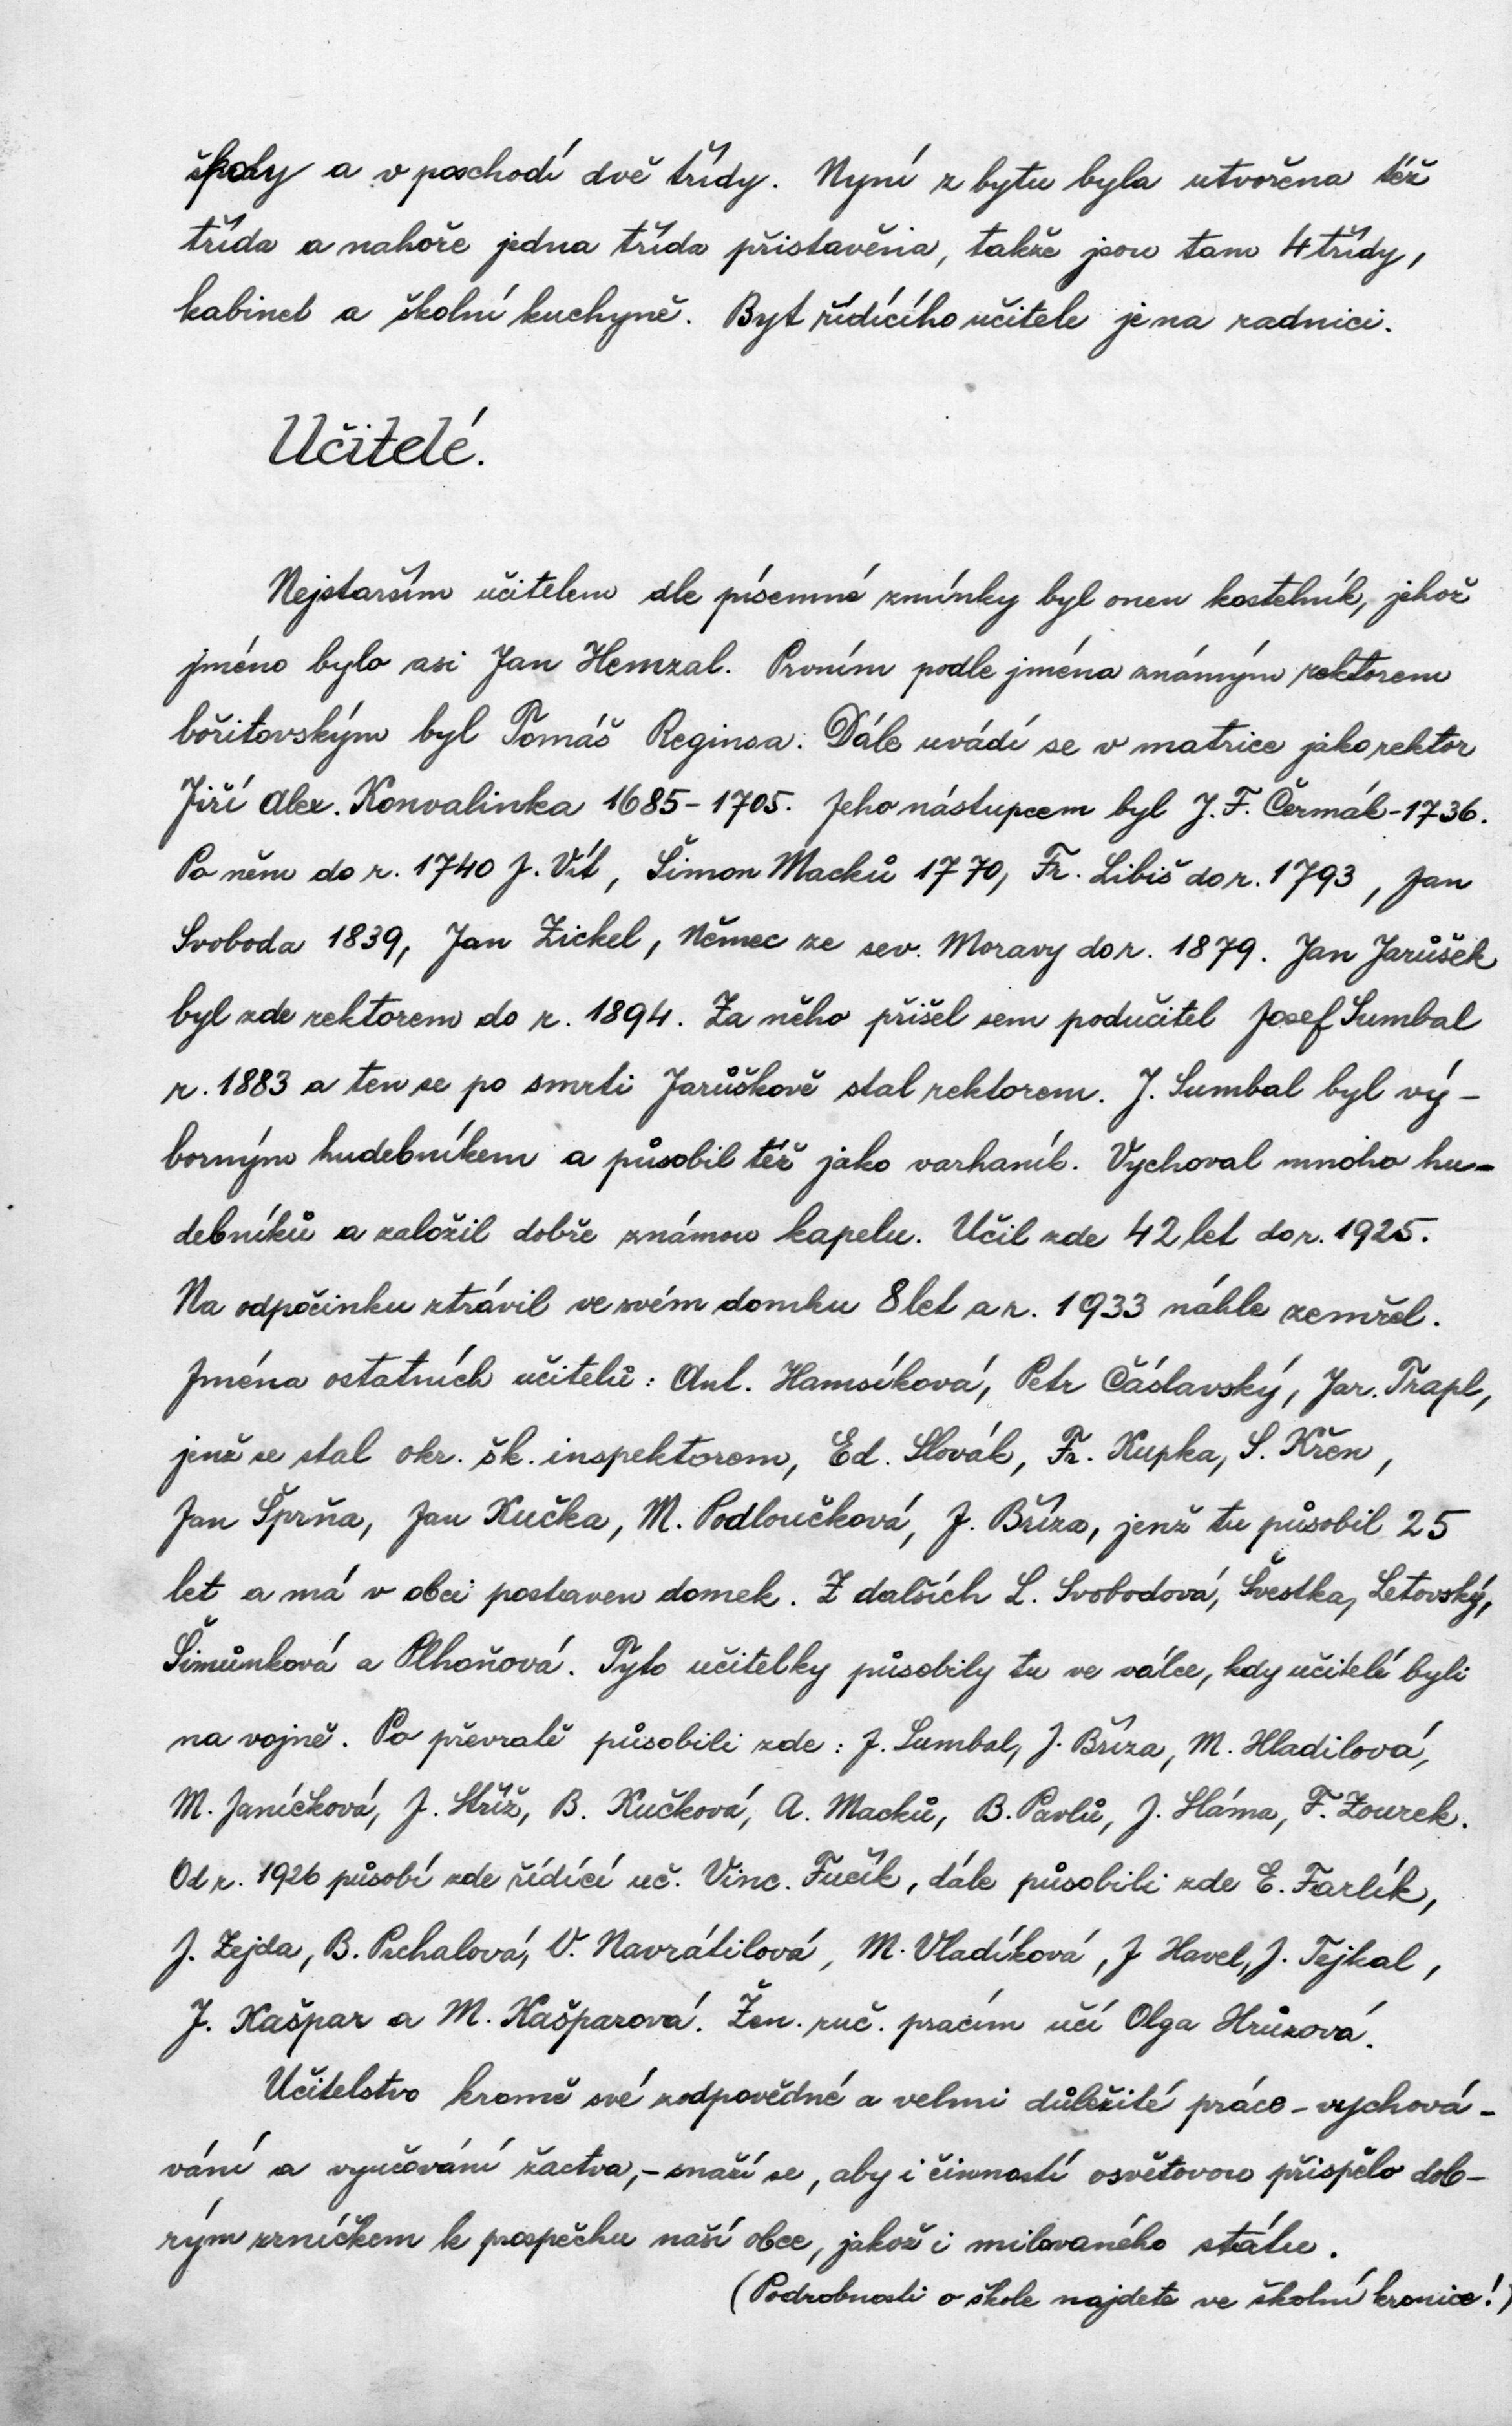 školy a v poschodí dvě třídy. Nyní z bytu byla utvořena též
třída a nahoře jedna třída přistavěna, takže jsou tam 4 třídy,
kabinet a školní kuchyně. Byt řídícího učitele je na radnici.
Učitelé.
Nejstarším učitelem dle písemné zmínky byl onen kostelník, jehož
jméno bylo asi Jan Hemzal. Prvním podle jména známým rektorem
bořitovským byl Tomáš Reginsa. Dále uvádí se v matrice jako rektor
Jiří Alex. Konvalinka 1685-1705. Jeho nástupcem byl J. F. Čermák-1736.
Po něm do r. 1740 J. Vít, Šimon Macků 1770, Fr. Libiš do r. 1793, Jan
Svoboda 1839, Jan Zickel, Němec ze sev. Moravy do r. 1879. Jan Jarůšek
byl zde rektorem do r. 1894. Za něho přišel sem podučitel Josef Sumbal
r. 1883 a ten se po smrti Jarůškově stal rektorem. J. Sumbal byl vý-
borným hudebníkem a působil též jako varhaník. Vychoval mnoho hu-
debníků a založil dobře známou kapelu. Učil zde 42 let do r. 1925.
Na odpočinku ztrávil ve svém domku 8 let a r. 1933 náhle zemřel.
Jména ostatních učitelů: Ant. Hamsíková, Petr Čáslavský, Jar. Trapl,
jenž se stal okr. šk. inspektorem, Ed. Slovák, Fr. Kupka, S. Křen,
Jan Šprňa, Jan Kučka, M. Podloučková, J. Bříza, jenž tu působil 25
let a má v obci postaven domek. Z dalších L. Svobodová, Švestka, Letovský,
Šimůnková a Plhoňová. Tyto učitelky působily tu ve válce, kdy učitelé byli
na vojně. Po převratě působili zde: J. Sumbal, J. Bříza, M. Hladilová,
M. Janíčková, J. Stříž, B. Kučková, A. Macků, B. Pavlů, J. Sláma, F. Zourek.
Od r. 1926 působí zde řídící uč. Vinc. Fučík, dále působili zde E. Farlík,
J. Zejda, B. Puchalová, V. Navrátilová, M. Vladíková, J Havel, J. Tejkal,
J. Kašpar a M. Kašparová. Žen. ruč. pracím učí Olga Hrůzová.
Učitelstvo kromě své zodpovědné a velmi důležité práce - vychová-
vání a vyučování žactva, - snaží se, aby i činností osvětovou přispělo dob-
rým zrníčkem k prospěchu naší obce, jakož i milovaného státu.
(Podrobnosti o škole najdete ve školní kronice!)